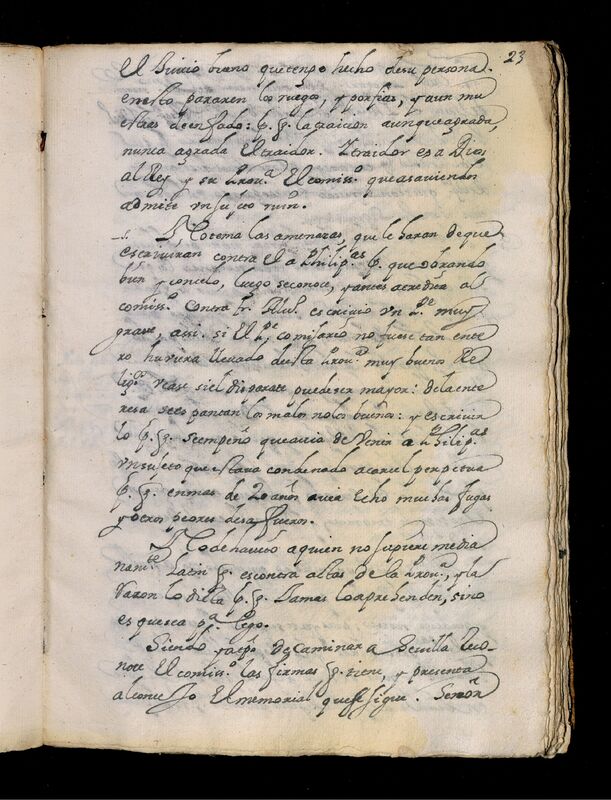 23
El Juicio bueno que tengo hecho de su persona.
en esto pararen los ruegos, y porfias, y aun mu
estras de enfado: p. q. la traicion aunque agrada,
nunca agrada El traidor. Traidor es a Dios
al Rey y su Prou.ª El comiss.º que asaviendas
admite un sujeto ruin.
No tema las amenazas, que le haran de que
escriuiran contra el a Philip.as p. que obrando
bien y concelo, luego se conoce, y antes acredita al
comiss.º contra fr. escrivio un P.e muy
grave, assi. si El P.e comisario no fuese tan ente
ro huviera llevado a esta Prou.ª muy buenos Re
lig.s vease si el disparate puede ser mayor: de la ente
resa se espantan los malos no los buenos: y escrivir
lo p. q. se empeño que avia de venir a Philip.as
un sujeto que estava condenado a carcel perpetua
p. q. en mas de 20 años avia echo muchas fugas
y otros peores desafueros.
No de havito a quien no supiere media
nam.te Latin q. es contra actas de la Prou.ª, y la
raron lo dicta p. q. Jamas lo aprehenden, sino
es que sea p.ª lego.
Siendo ya tpo de caminar a Sevilla Reco-
noce El comiss.º las firmas q. tiene, y presenta
al consejo El memorial que se sigue. Señor